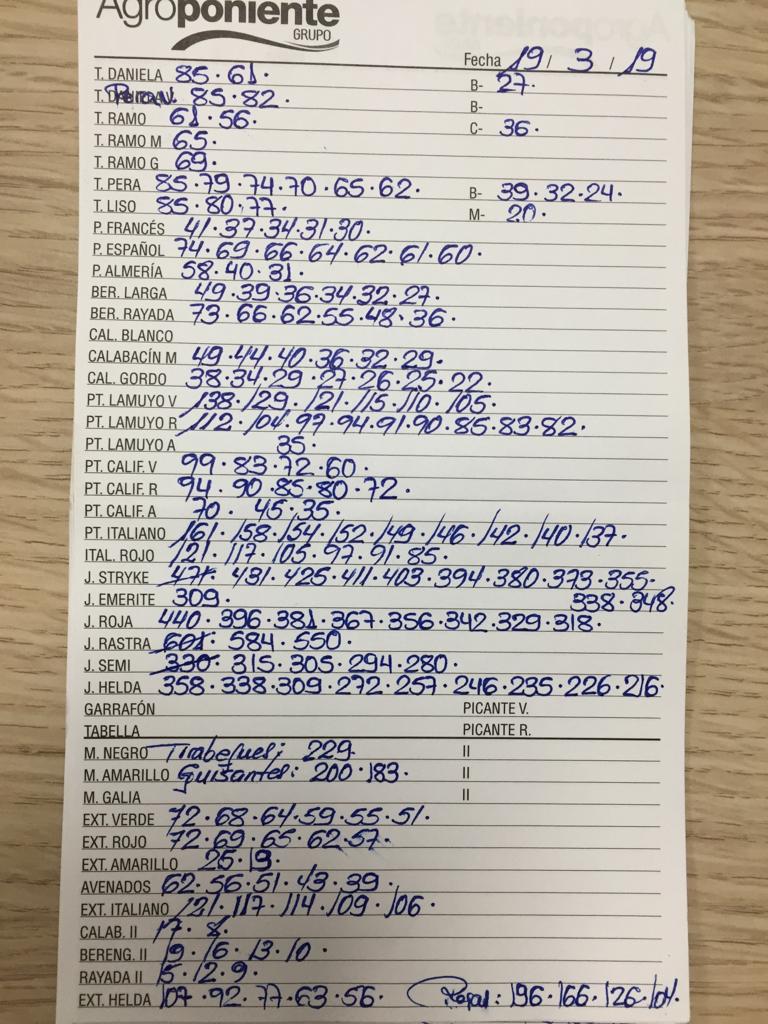 Agroponiente
GRUPO
Fecha 19 / 3 / 19
T. DANIELA 85·61· B- 27·
85·82· B-
T. RAMO 61·56· C- 36·
T. RAMO M 65·
T. RAMO G 69·
T. PERA 85·79·74·70·65·62· B- 39·32·24·
T. LISO 85·80·77· M- 20·
P. FRANCÉS 41·37·34·31·30·
P. ESPAÑOL 74·69·66·64·62·61·60·
P. ALMERÍA 58·40·31·
BER. LARGA 49·39·36·34·32·27·
BER. RAYADA 73·66·62·55·48·36·
CAL. BLANCO
CALABACÍN M 49·44·40·36·32·29·
CAL. GORDO 38·34·29·27·26·25·22·
PT. LAMUYO V 138·129·121·115·110·105·
PT. LAMUYO R 112·104·97·94·91·90·85·83·82·
PT. LAMUYO A 35·
PT. CALIF. V 99·83·72·60·
PT. CALIF. R 94·90·85·80·72·
PT. CALIF. A 70· 45·35·
PT. ITALIANO 161·158·154·152·149·146·142·140·137·
ITAL. ROJO 121·117·105·97·91·85·
J. STRYKE 471· 431·425·411·403·394·380·373·355·
J. EMERITE 309· 338·348·
J. ROJA 440·396·381·367·356·342·329·318·
J. RASTRA 601· 584·550·
J. SEMI 330· 315·305·294·280·
J. HELDA 358·338·309·272·257·246·235·226·216·
GARRAFÓN PICANTE V.
TABELLA PICANTE R.
M. NEGRO Tirabeques: 229· II
M. AMARILLO Guisantes: 200·183· II
M. GALIA II
EXT. VERDE 72·68·64·59·55·51·
EXT. ROJO 72·69·65·62·57·
EXT. AMARILLO 25·19·
AVENADOS 62·56·51·43·39·
EXT. ITALIANO 121·117·114·109·106·
CALAB. II 17·8·
BERENG. II 19·16·13·10·
RAYADA II 15·12·9·
EXT. HELDA 107·92·77·63·56· : 196·166·126·104·